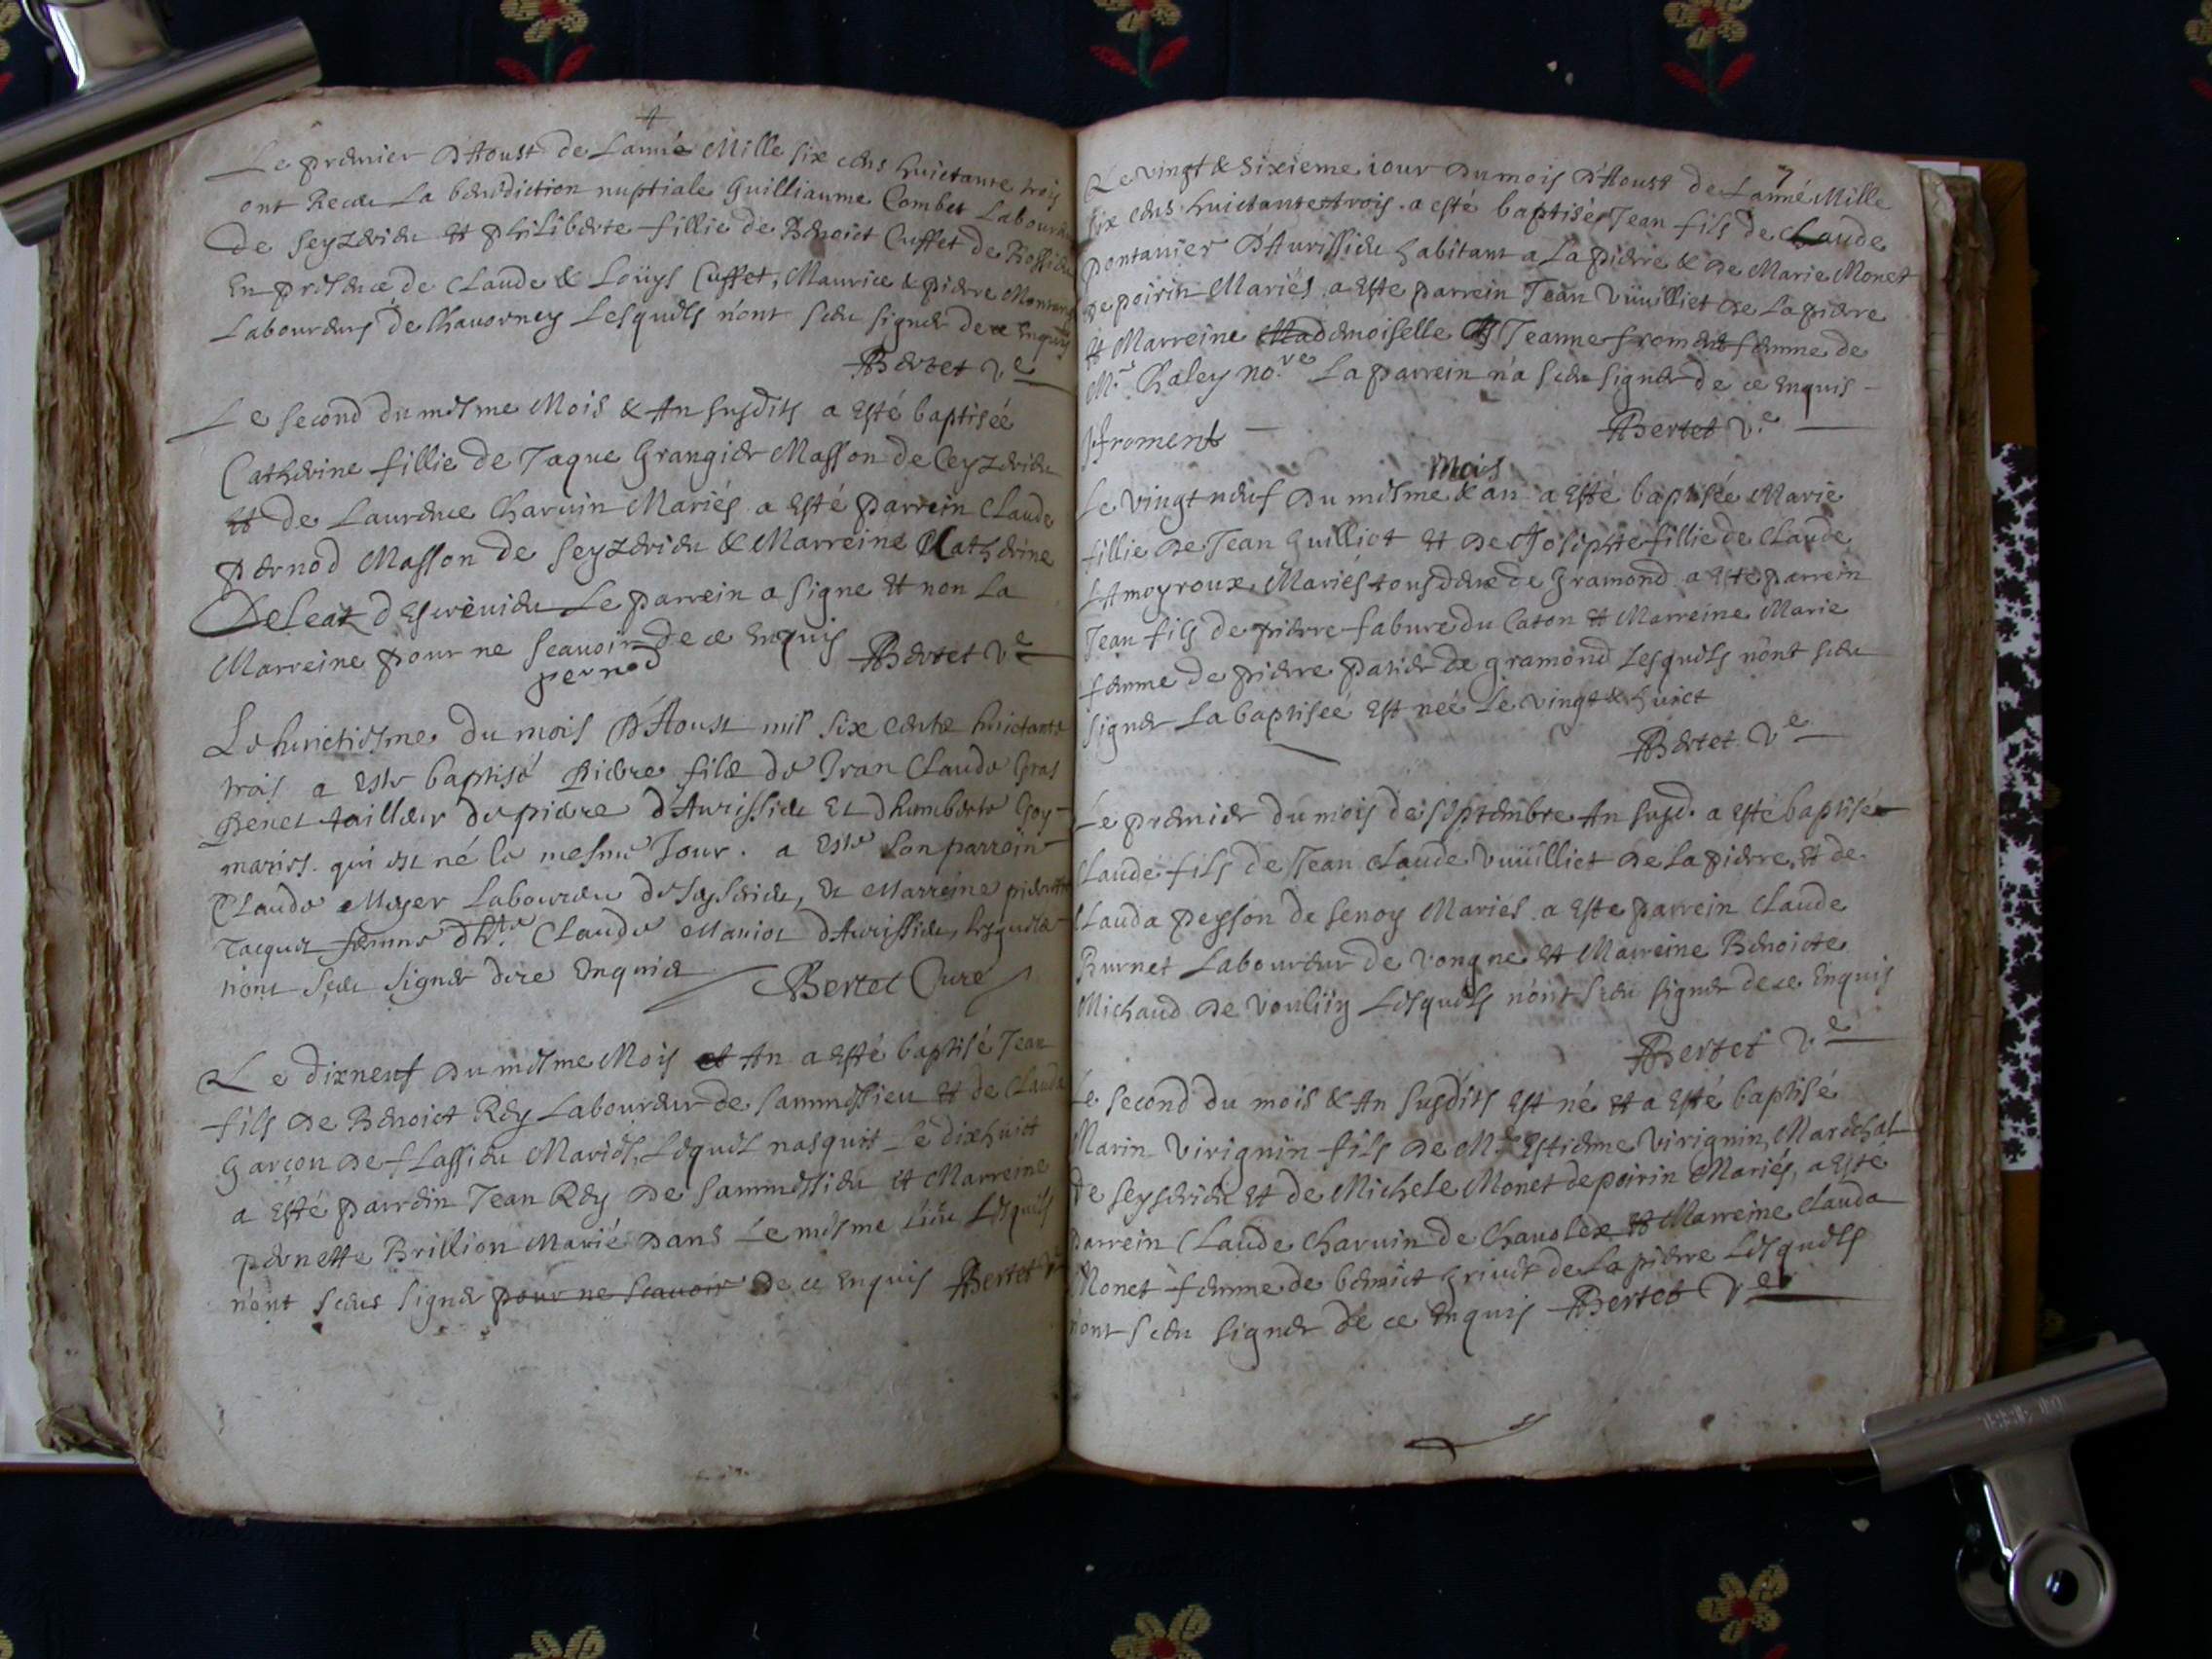 Le premier d'Aoust de L'anneé Mille six cens huictante trois
ont Receu La benediction nuptiale Guilliaume Combet Laboureur
de Seyzerieu et philiberte fillie de Benoict Cuffet de
En presence de Claude & Loüys Cuffet, Maurice & pierre
Laboureurs de Chavorney Lesquels n'ont sceu signer de ce Enquis
Bertet V.e
Le second du mesme Mois & An susdits a Esté baptiseé
Catherine fillie de Jaque Grangier Masson de Ceyzerieu
et de Laurence Charvin Mariés a Esté parrein Claude
pernod Masson de Seyzerieu & Marreine Catherine
Deleaz d'Escrivieu Le parrein a signe et non La
Marreine pour ne scavoir de ce Enquis Bertet V.e
pernod
Le huictiesme du mois d'Aoust mil six cents huictante
trois a esté baptisé Pierre fils de Jean Claude Gras
Benet tailleur de piere d'Aurissieu et d'humberte Goy
mariés. qui est né le mesme Jour. a esté son parrein
Claude Moyer Laboureu de et Marreine
Jacquet femme d'h.te Claude Maniot d'Aurissieu, lesquels
n'ont sceu signer de ce Enquis Bertet Curé
Le dixneuf du mesme Mois et An a esté baptisé Jean
fils de Benoict Rey Laboureur de Sammessieu et de Clauda
Garçon de flassieu Mariés, Lequel nasquit Le dixhuict
a Esté parrein Jean Rey de Sammessieu et Marreine
pernette Brillion Marié dans Le mesme Lieu Lesquels
n'ont sceus signer pour ne scavoir de ce Enquis Bertet V.e
7
Le vingt & sixieme jour du mois d'Aoust de L'anné Mille
six cens huictante trois. a esté baptisé Jean fils de Claude
pontanier d'Aurissieu habitant a La pierre & de Marie Monet
de poirin Mariés a Este parrein Jean Vuilliet de La pierre
et Marreine Mademoiselle Jeanne froment femme de
M.r Chaley no.re La parrein n'a sceu signer de ce Enquis
Bertet V.e
froment
Mois
Le vingt neuf du mesme & an a Esté baptisée Marie
fillie de Jean Guilliot et de Josephte fillie de Claude
L'Amoyroux Mariés tous deux de Gramond a este parrein
Jean fils de pierre fabure du Caton et Marreine Marie
femme de pierre de gramond Lesquels n'ont sceu
signer La baptiseé Est neé Le vingt & huict
Bertet V.e
Le premier du mois de Septembre An susd. a Esté baptisé
Claude fils de Jean Claude Vuilliet de La pierre, et de
Clauda peysson de Senoy Mariés a Este parrein Claude
Burnet Laboureur de Vongne et Marreine Benoicte
Michaud de Lesquels n'ont sceu signer de ce Enquis
Bertet V.e
Le second du mois & An susdits Est né et a Esté baptisé
Marin Virignin fils de M.e Estienne Virignin, Marechal
de Seyserieu et de Michele Monet de poirin Mariés, a Esté
parrein Claude Charvin de Chavolex et Marreine Clauda
Monet femme de benoict de La pierre Lesquels
n'ont sceu signer de ce Enquis Bertet V.e